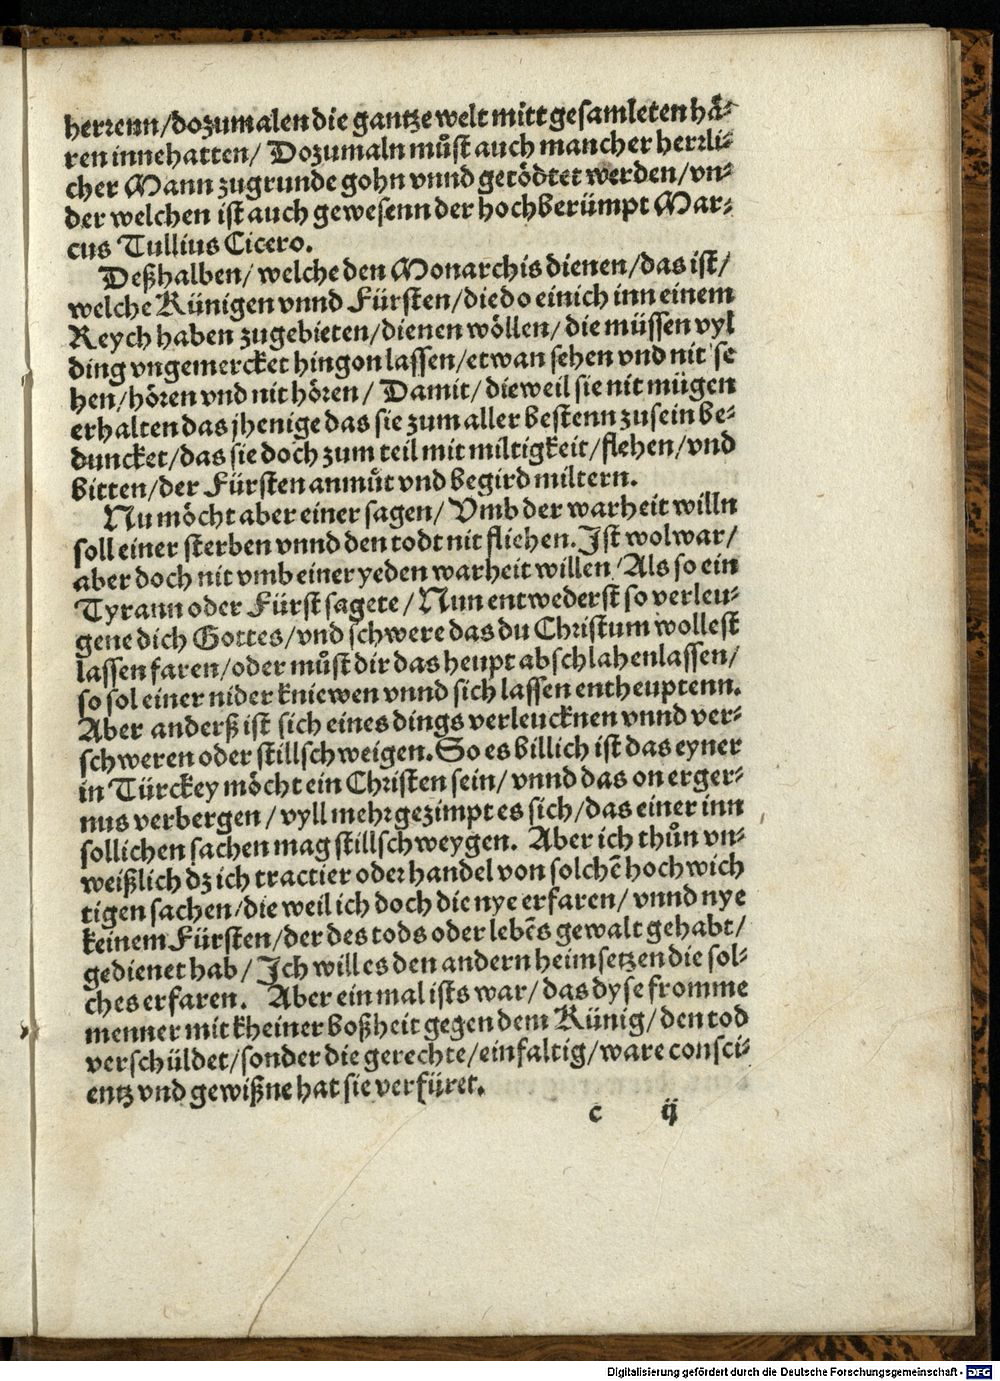 herrenn/dozumalen die gantze welt mitt gesamleten hå-
ren innehatten/ Dozumaln můst auch mancher herrli-
cher Mann zugrunde gohn vnnd getödtet werden/vn-
der welchen ist auch gewesenn der hochberümpt Mar-
cus Tullius Cicero.
Deßhalben/ welche den Monarchis dienen/das ist/
welche Künigen vnnd Fürsten/die do einich inn einem
Reych haben zugebieten/dienen wöllen/ die müssen vyl
ding vngemercket hingon lassen/etwan sehen vnd nit se
hen/hören vnd nit hören/ Damit/ dieweil sie nit mügen
erhalten das jhenige das sie zum aller bestenn zusein be-
duncket/das sie doch zum teil mit miltigkeit/flehen/vnd
bitten/der Fürsten anmůt vnd begird miltern.
Nu möcht aber einer sagen/ Vmb der warheit willn
soll einer sterben vnnd den todt nit fliehen. Ist wol war/
aber doch nit vmb einer yeden warheit willen/Als so ein
Tyrann oder Fürst sagete/ Nun entwederst so verleu-
gene dich Gottes/vnd schwere das du Christum wollest
lassen faren/oder můst dir das heupt abschlahen lassen/
so sol einer nider kniewen vnnd sich lassen entheuptenn.
Aber anderß ist sich eines dings verleucknen vnnd ver-
schweren oder stillschweigen. So es billich ist das eyner
in Türckey möcht ein Christen sein/ vnnd das on erger-
nus verbergen/ vyll mehr gezimpt es sich/das einer inn
sollichen sachen mag stillschweygen. Aber ich thůn vn-
weißlich dz ich tractier oder handel von solchē hoch wich
tigen sachen/die weil ich doch die nye erfaren/ vnnd nye
keinem Fürsten/der des tods oder lebēs gewalt gehabt/
gedienet hab/ Ich will es den andern heimsetzen die sol-
ches erfaren. Aber ein mal ists war/ das dyse fromme
menner mit kheiner boßheit gegen dem Künig/ den tod
verschüldet/sonder die gerechte/einfaltig/ware consci-
entz vnd gewißne hat sie verfüret.
c ij
Digitalisierung gefördert durch die Deutsche Forschungsgemeinschaft - DFG